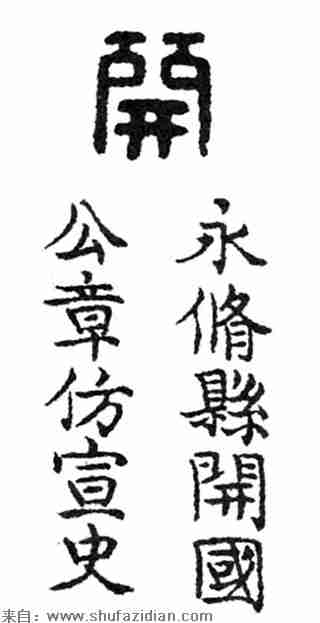 開
永脩縣開國
公章仿宣史
来自：www.shufazidian.com